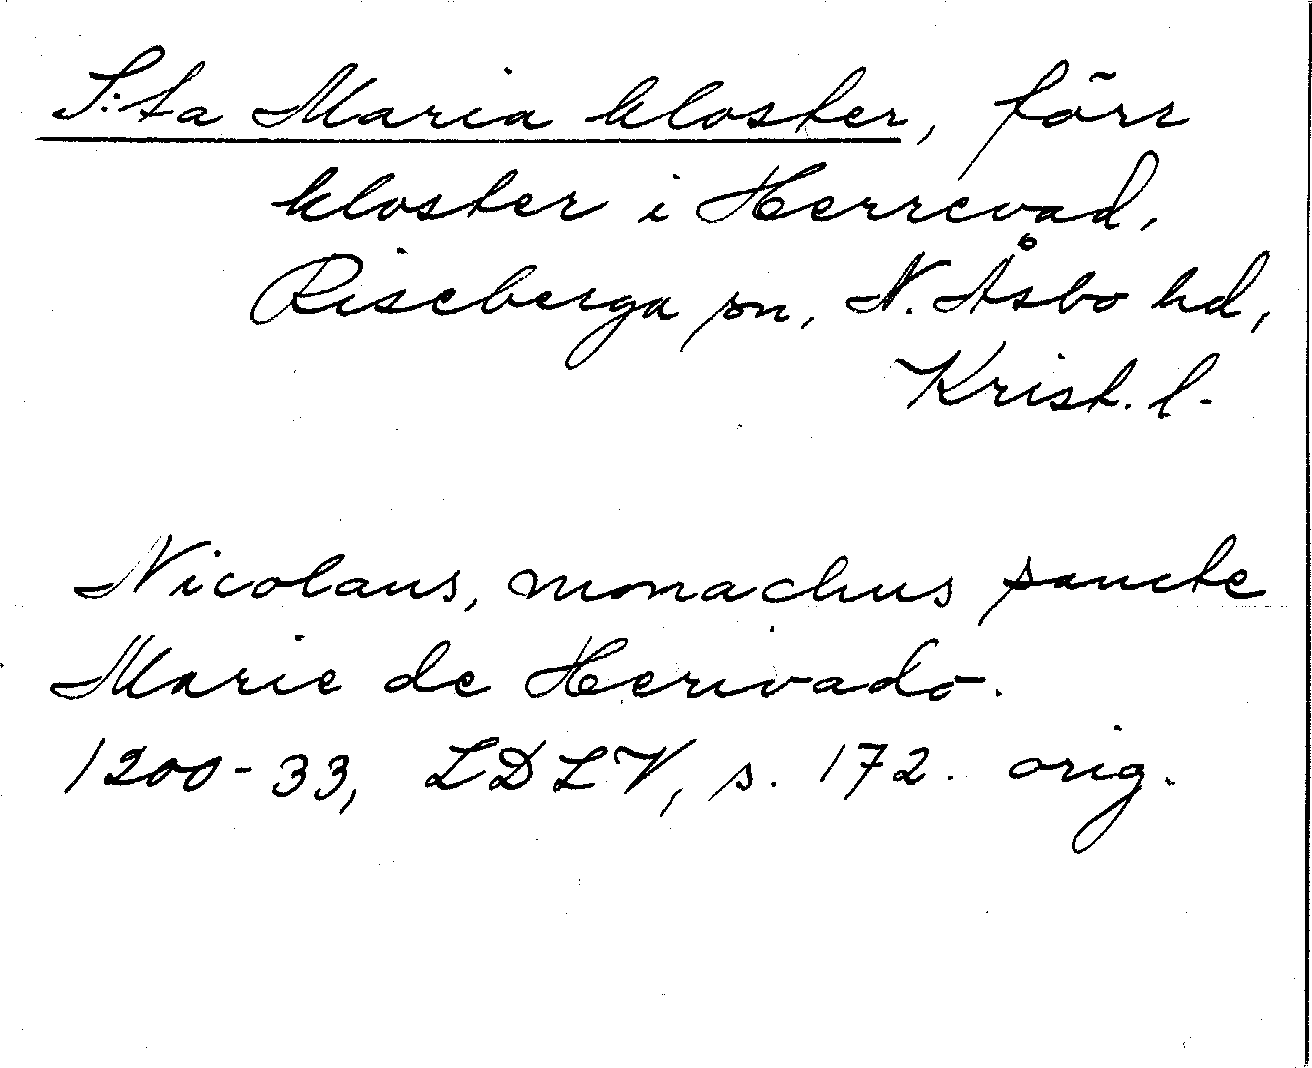 S:ta Maria kloster, förr
kloster i Herrevad,
Riseberga sn, N. Åsbo hd,
Krist. l.
Nicolaus, monachus sancte
Marie de Herivado.
1200-33, LDLV, s. 172. orig.